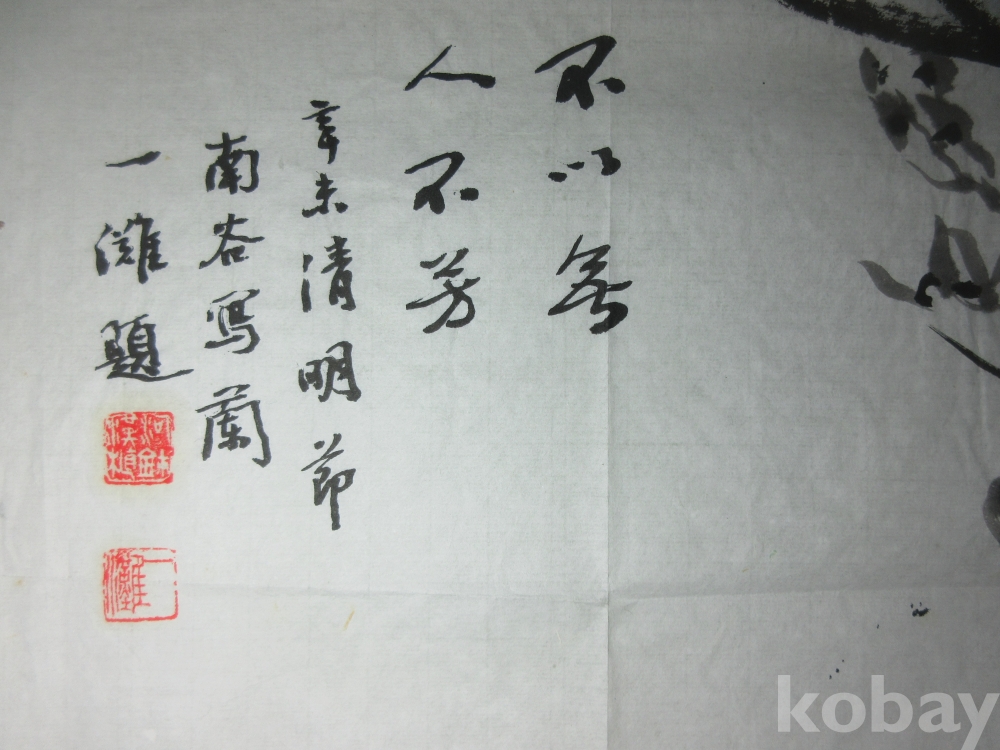 不以無
人不芳
辛未清明節
南谷寫蘭
一濰題
kobay